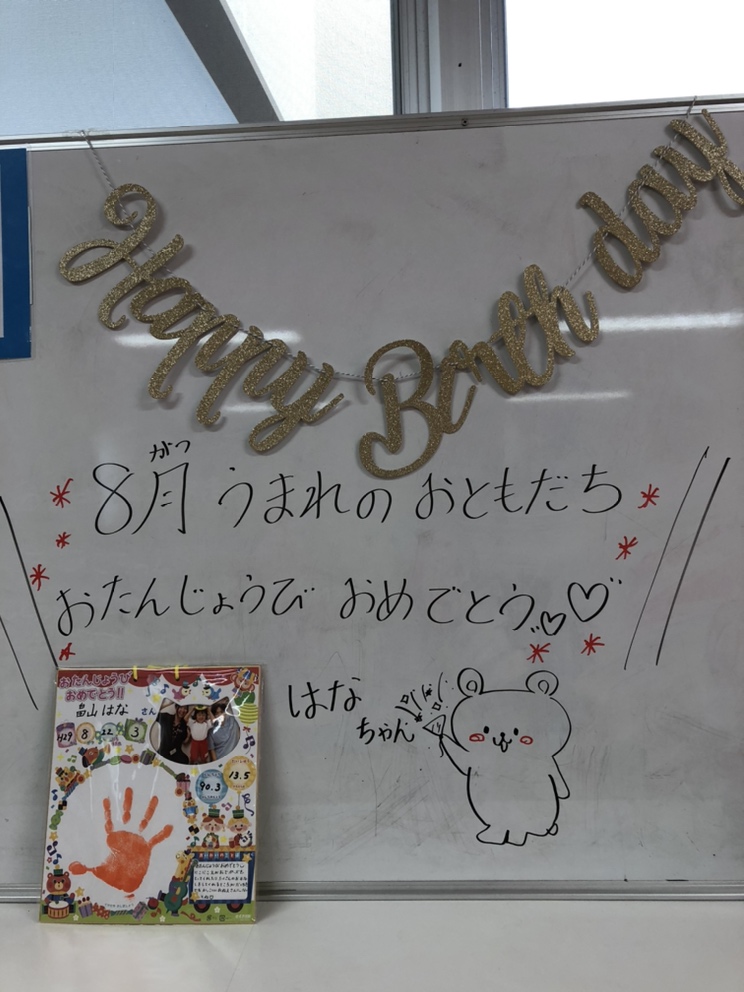 Happy Birthday
がつ
8月 うまれの おともだち
おたんじょうび おめでとう
はな
ちゃん
おたんじょうび
おめでとう!!
畠山 はな さん
H29 8 22 3
90.3 13.5